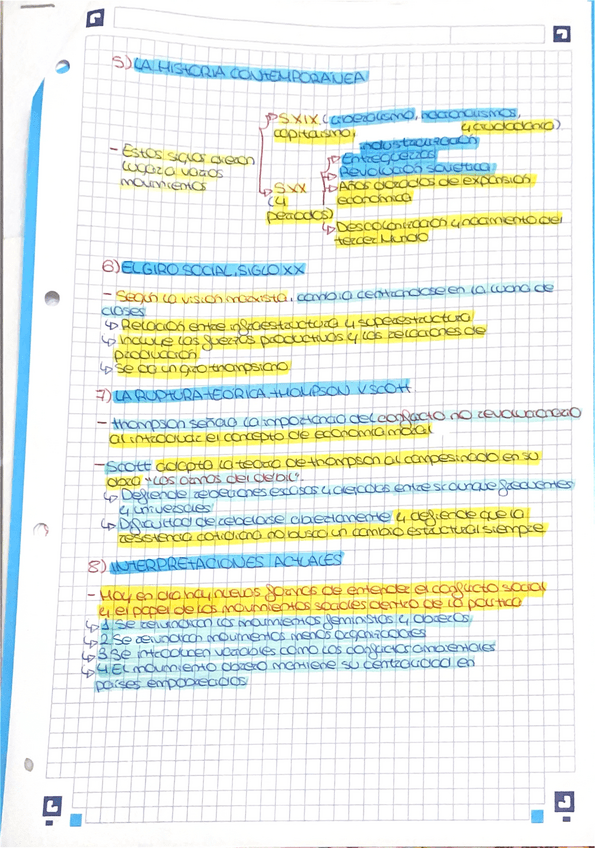 5) LA HISTORIA CONTEMPORANEA
→ S XIX (liberalismo, nacionalismos,
capitalismo, y ciudadanía)
industrialización
- Estos siglos dieron
lugar a varios
movimientos
→ S XX
(4
periodos)
→ Entreguerras
→ Revolución soviética
→ Años dorados de expansión
económica
→ Descolonización y nacimiento del
tercer Mundo
6) EL GIRO SOCIAL, SIGLO XX
- Según la visión marxista, cambia centrandose en la lucha de
clases
↳ Relación entre infraestructura y superestructura
↳ Incluye las fuerzas productivas y las relaciones de
producción
↳ Se da un giro thompsiano
7) LA RUPTURA TEORICA. THOMPSON Y SCOTT
- Thompson señala la importancia del conflicto no revolucionario
al introducir el concepto de economía moral
- Scott adapta la teoría de thompson al campesinado en su
obra "Los armas del debil".
↳ Defiende rebeliones escasas y alejadas entre si aunque frecuentes
y universales
↳ Dificultad de rebelarse abiertamente y defiende que la
resistencia cotidiana no busca un cambio estructural siempre
8) INTERPRETACIONES ACTUALES
- Hoy en dia hay nuevas formas de entender el conflicto social
y el papel de los movimientos sociales dentro de la política
↳ 1. Se reivindican los movimientos feministas y obreros
↳ 2. Se reivindican movimientos menos organizadores
↳ 3. Se introducen variables como los conflictos ambientales
↳ 4. El movimiento obrero mantiene su centralidad en
países empobrecidos